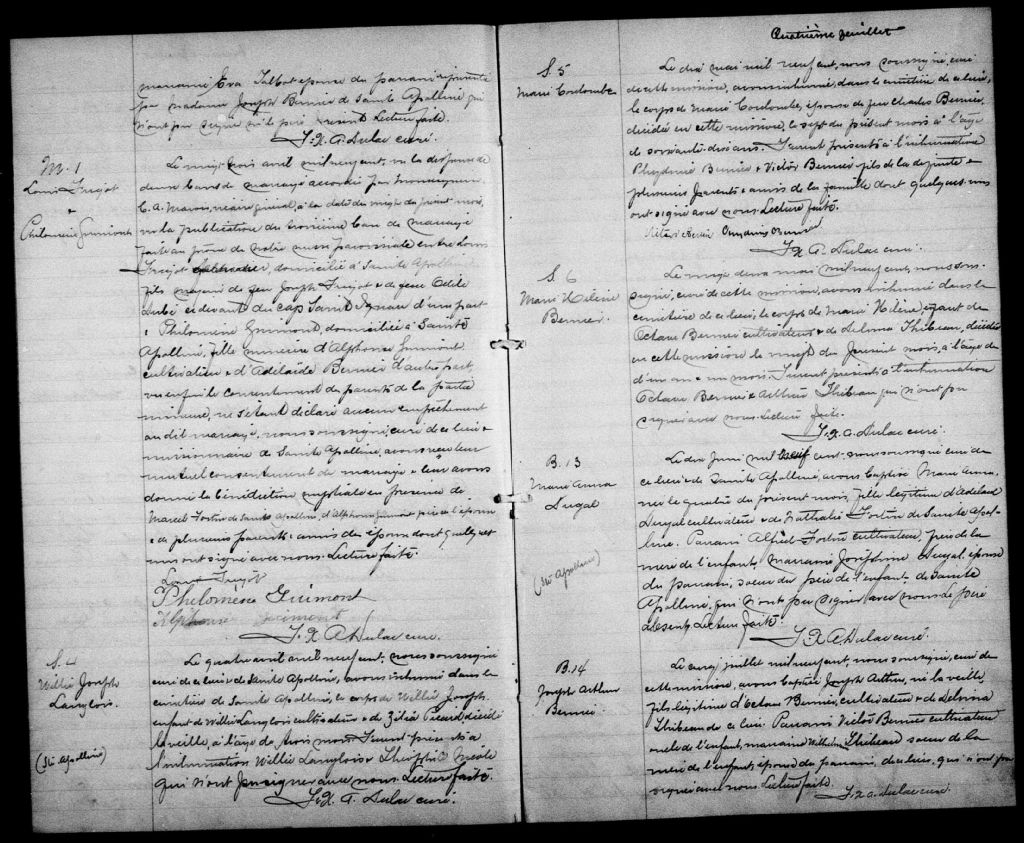 marraine Eva Talbot épouse du parrain représenté
par madame Joseph Bernier de Sainte Apolline qui
n'ont pu signer ni le père absent. Lecture faite.
J. X. A. Dulac curé.
M. 1
Louis Fréjot
&
Philomène Guimont
Le vingt trois avril mil neuf cent, vu la dispense de
deux bans de mariage accordé par Monseigneur
C. A. Marois, vicaire général, à la date du vingt du présent mois,
vu la publication du troisième ban de mariage
faite au prône de notre messe paroissiale entre Louis
Fréjot, domicilié à Sainte Apolline,
fils majeur de feu Joseph Fréjot & de feue Odile
Aubé ci devant du Cap Saint Ignace d'une part
& Philomène Guimont, domiciliée à Sainte
Apolline, fille mineure d'Alphonse Guimont
cultivateur & d'Adelaide Bernier d'autre part,
vu enfin le consentement des parents de la partie
mineure, ne s'étant déclaré aucun empêchement
au dit mariage, nous soussigné, curé de ce lieu &
missionnaire de Sainte Apolline, avons reçu leur
mutuel consentement de mariage & leur avons
donné la bénédiction nuptiale en présence de
Marcel Fortin de Sainte Apolline, d'Alphonse Guimont père de l'épouse
& de plusieurs parents & amis des époux dont quelques
uns ont signé avec nous. Lecture faite.
Louis Fréjot
Philomène Guimont
Alphonse Guimont
J. X. A. Dulac curé.
S. 4
Willie Joseph
Langlois.
(Ste Apolline)
Le quatre avril mil neuf cent, nous soussigné
curé de ce lieu & de Sainte Apolline, avons inhumé dans le
cimetière de Sainte Apolline, le corps de Willie Joseph,
enfant de Willie Langlois cultivateur & de Zélia Picard, décédé
la veille, à l'âge de trois mois. Furent présents à
l'inhumation Willie Langlois & Théophile Nicole
qui n'ont pu signer avec nous. Lecture faite.
J. X. A. Dulac curé.
Quatrième feuillet
S. 5
Marie Coulombe
Le dix mai mil neuf cent, nous soussigné, curé
de cette mission, avons inhumé, dans le cimetière de ce lieu,
le corps de Marie Coulombe, épouse de feu Charles Bernier,
décédée en cette mission, le sept du présent mois à l'âge
de soixante-dix ans. Furent présents à l'inhumation
Bernier & Victor Bernier fils de la défunte &
plusieurs parents & amis de la famille dont quelques uns
ont signé avec nous. Lecture faite.
Victor Bernier Bernier
J. X. A. Dulac curé.
S. 6
Marie Hélène
Bernier.
Le vingt deux mai mil neuf cent, nous sous-
signé, curé de cette mission, avons inhumé dans le
cimetière de ce lieu, le corps de Marie Hélène, enfant de
Octave Bernier cultivateur & de Delvina Thibeau, décédée
en cette mission le vingt du présent mois, à l'âge de
d'un an & un mois. Furent présents à l'inhumation
Octave Bernier & Arthur Thibeau qui n'ont pu
signer avec nous. Lecture faite.
J. X. A. Dulac curé.
B. 13
Marie Anna
Dugal
(Ste Apolline)
Le dix Juin mil neuf cent, nous soussigné curé de
ce lieu & de Sainte Apolline, avons baptisé Marie Anna,
née le quatre du présent mois, fille légitime d'Adelard
Dugal cultivateur & de Nathalie Fortin de Sainte Apol-
line. Parrain Alfred Fortin cultivateur, frère de la
mère de l'enfant, marraine Joséphine Dugal, épouse
du parrain, soeur du père de l'enfant, de Sainte
Apolline, qui n'ont pu signer avec nous. Le père
absent. Lecture faite.
J. X. A. Dulac curé.
B. 14
Joseph Arthur
Bernier
Le cinq juillet mil neuf cent, nous soussigné, curé de
cette mission, avons baptisé Joseph Arthur, né la veille,
fils légitime d'Octave Bernier, cultivateur & de Delvina
Thibeau de ce lieu. Parrain Victor Bernier cultivateur
oncle de l'enfant, marraine Wilhelmine Thibeau soeur de la
mère de l'enfant, épouse du parrain, de ce lieu, qui n'ont pu
signer avec nous. Lecture faite.
J. X. A. Dulac curé.